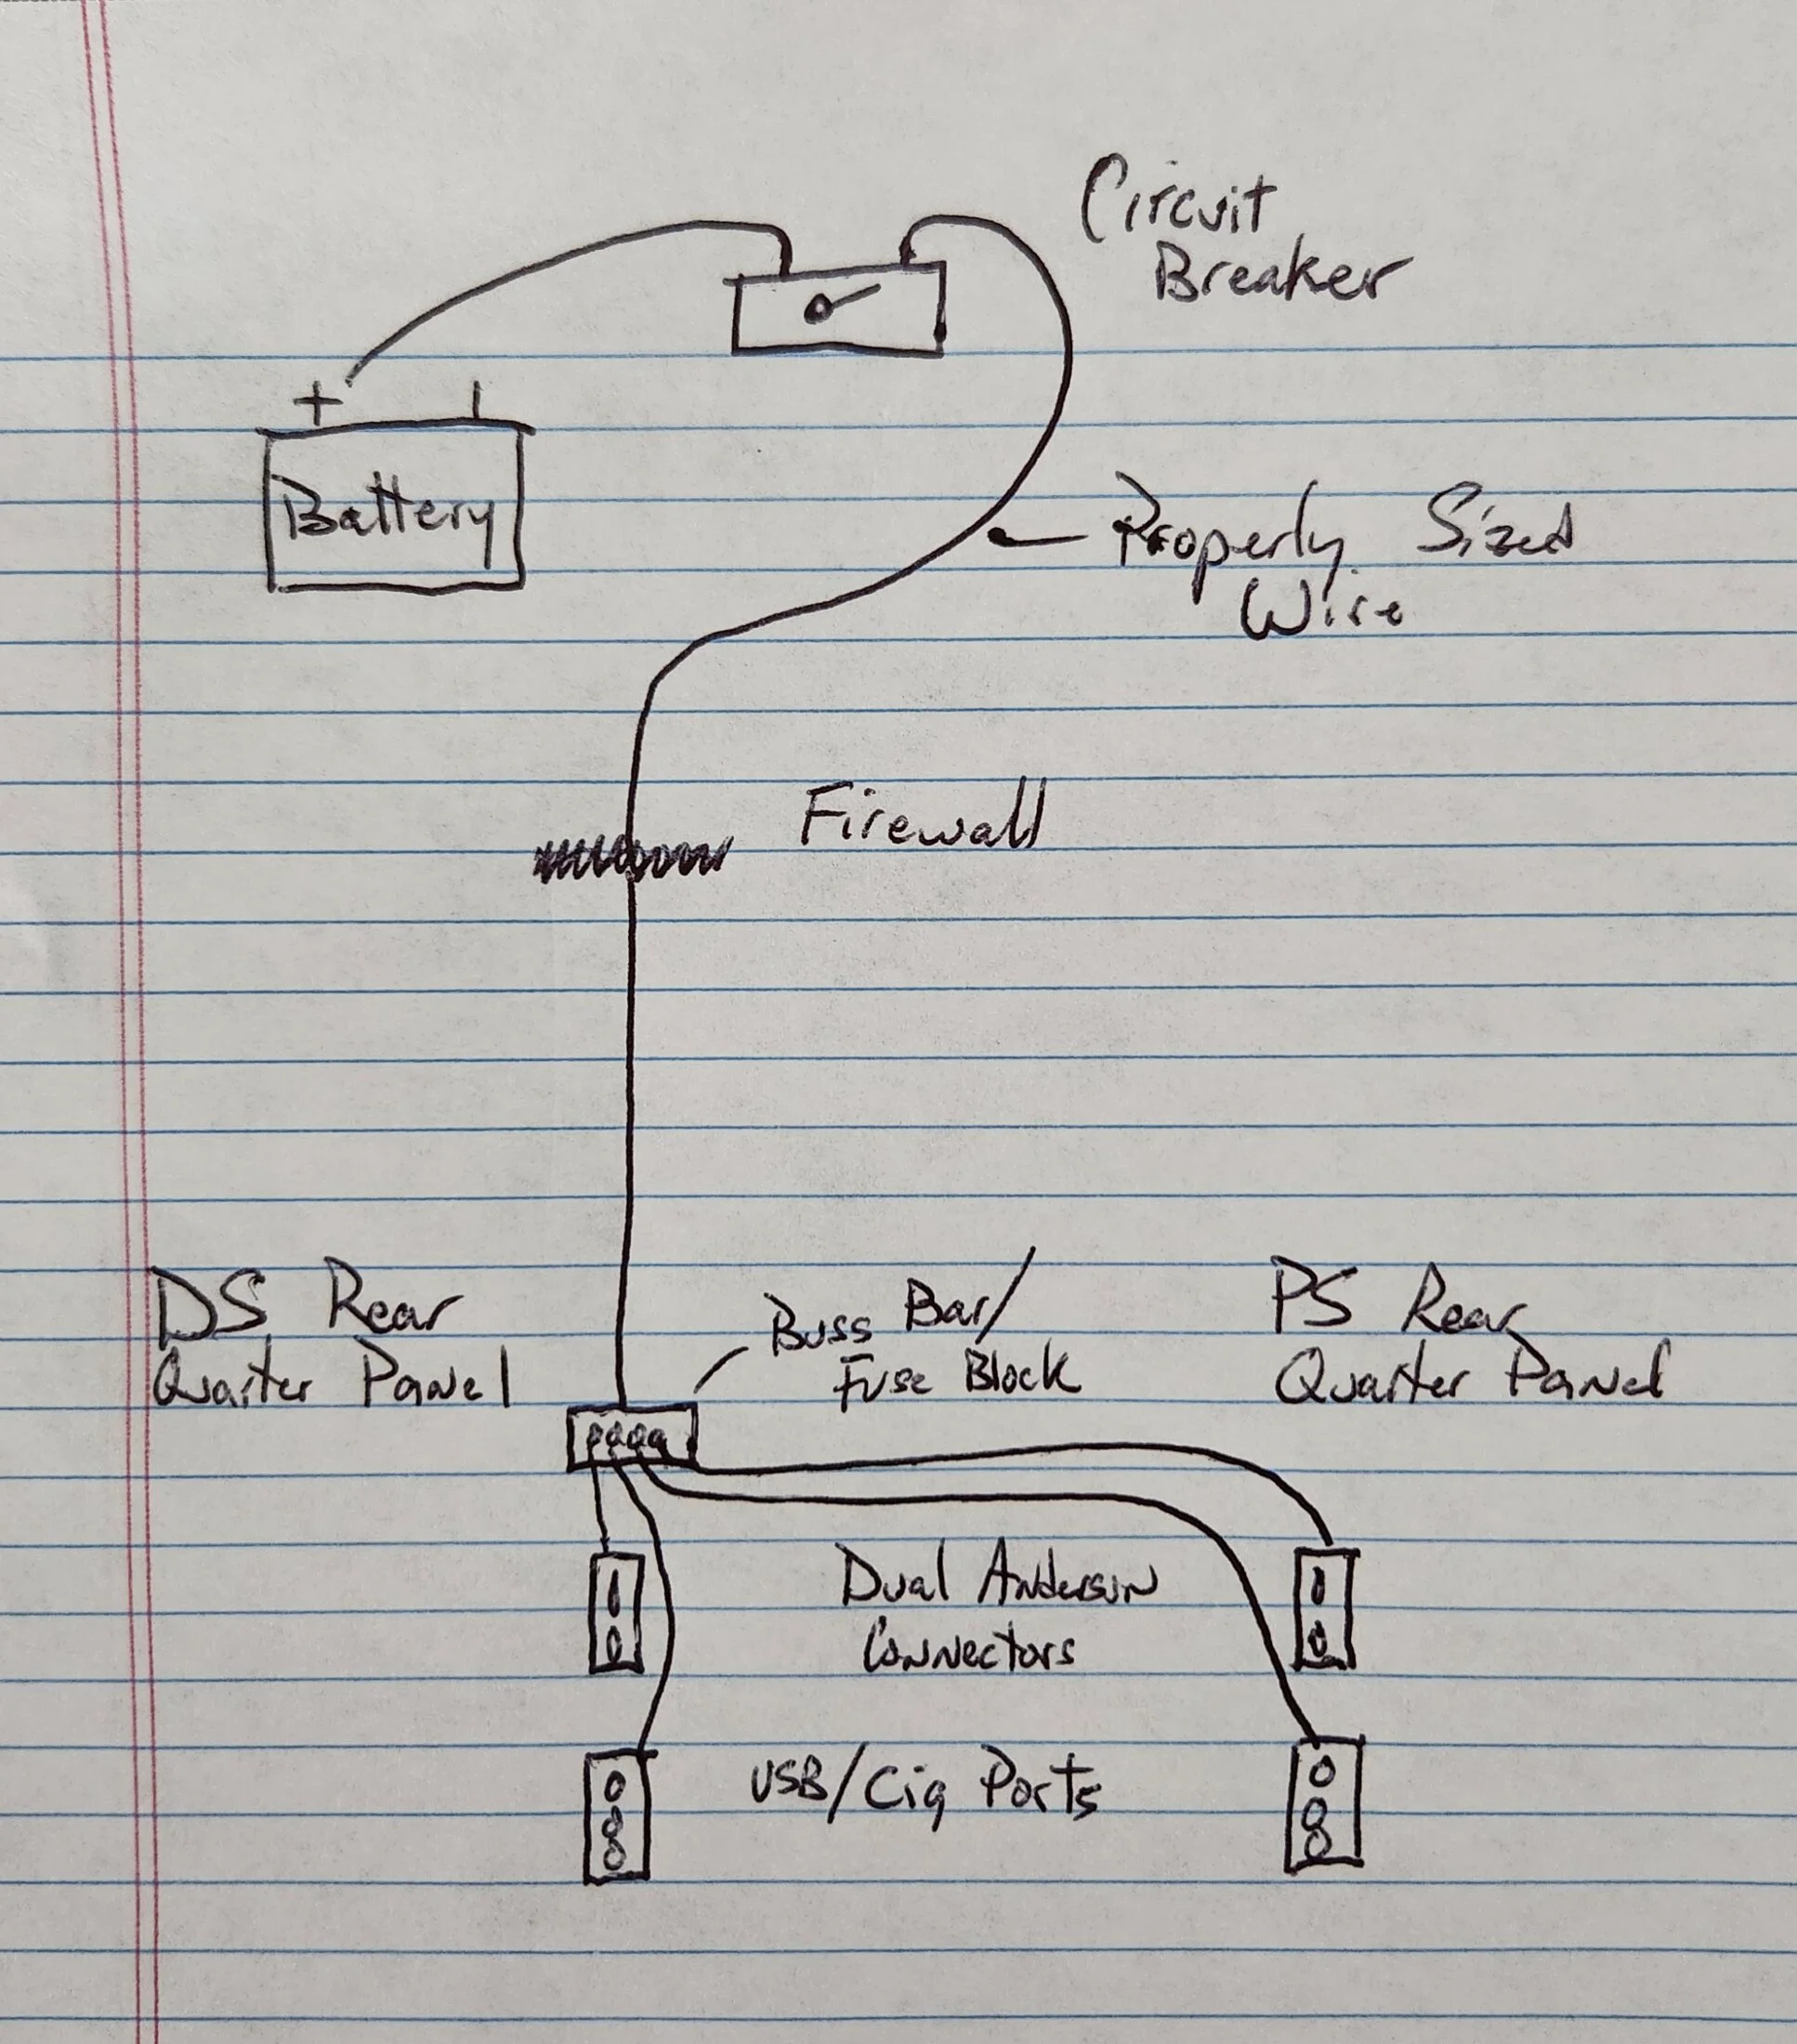 Circuit
Breaker
+ -
Battery
Properly Sized
Wire
Firewall
DS Rear
Quarter Panel
Buss Bar/
Fuse Block
PS Rear
Quarter Panel
Dual Anderson
Connectors
USB/Cig Ports